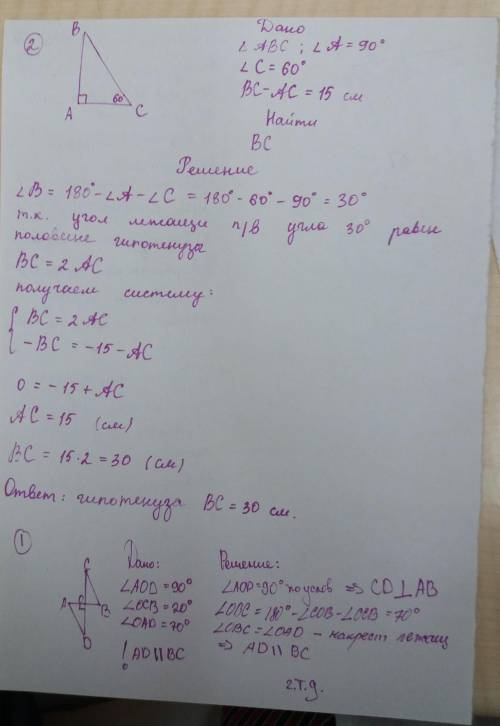 ②
B
A
60°
C
Дано
∠ABC ; ∠A = 90°
∠C = 60°
BC - AC = 15 см
Найти
BC
Решение
∠B = 180° - ∠A - ∠C = 180° - 60° - 90° = 30°
т.к. угол лежащи п/в угла 30° равен
половине гипотенуза
BC = 2 AC
получаем систему:
{ BC = 2 AC
-BC = -15 - AC
0 = -15 + AC
AC = 15 (см)
BC = 15 · 2 = 30 (см)
Ответ: гипотенуза BC = 30 см.
①
C
A
B
D
Дано:
∠AOD = 90°
∠OCB = 20°
∠OAD = 70°
! AD || BC
Решение:
∠AOD = 90° по услов ⇒ CD ⊥ AB
∠OBC = 180° - ∠COB - ∠OCB = 70°
∠OBC = ∠OAD - накрест лежащ
⇒ AD || BC
г.т.g.